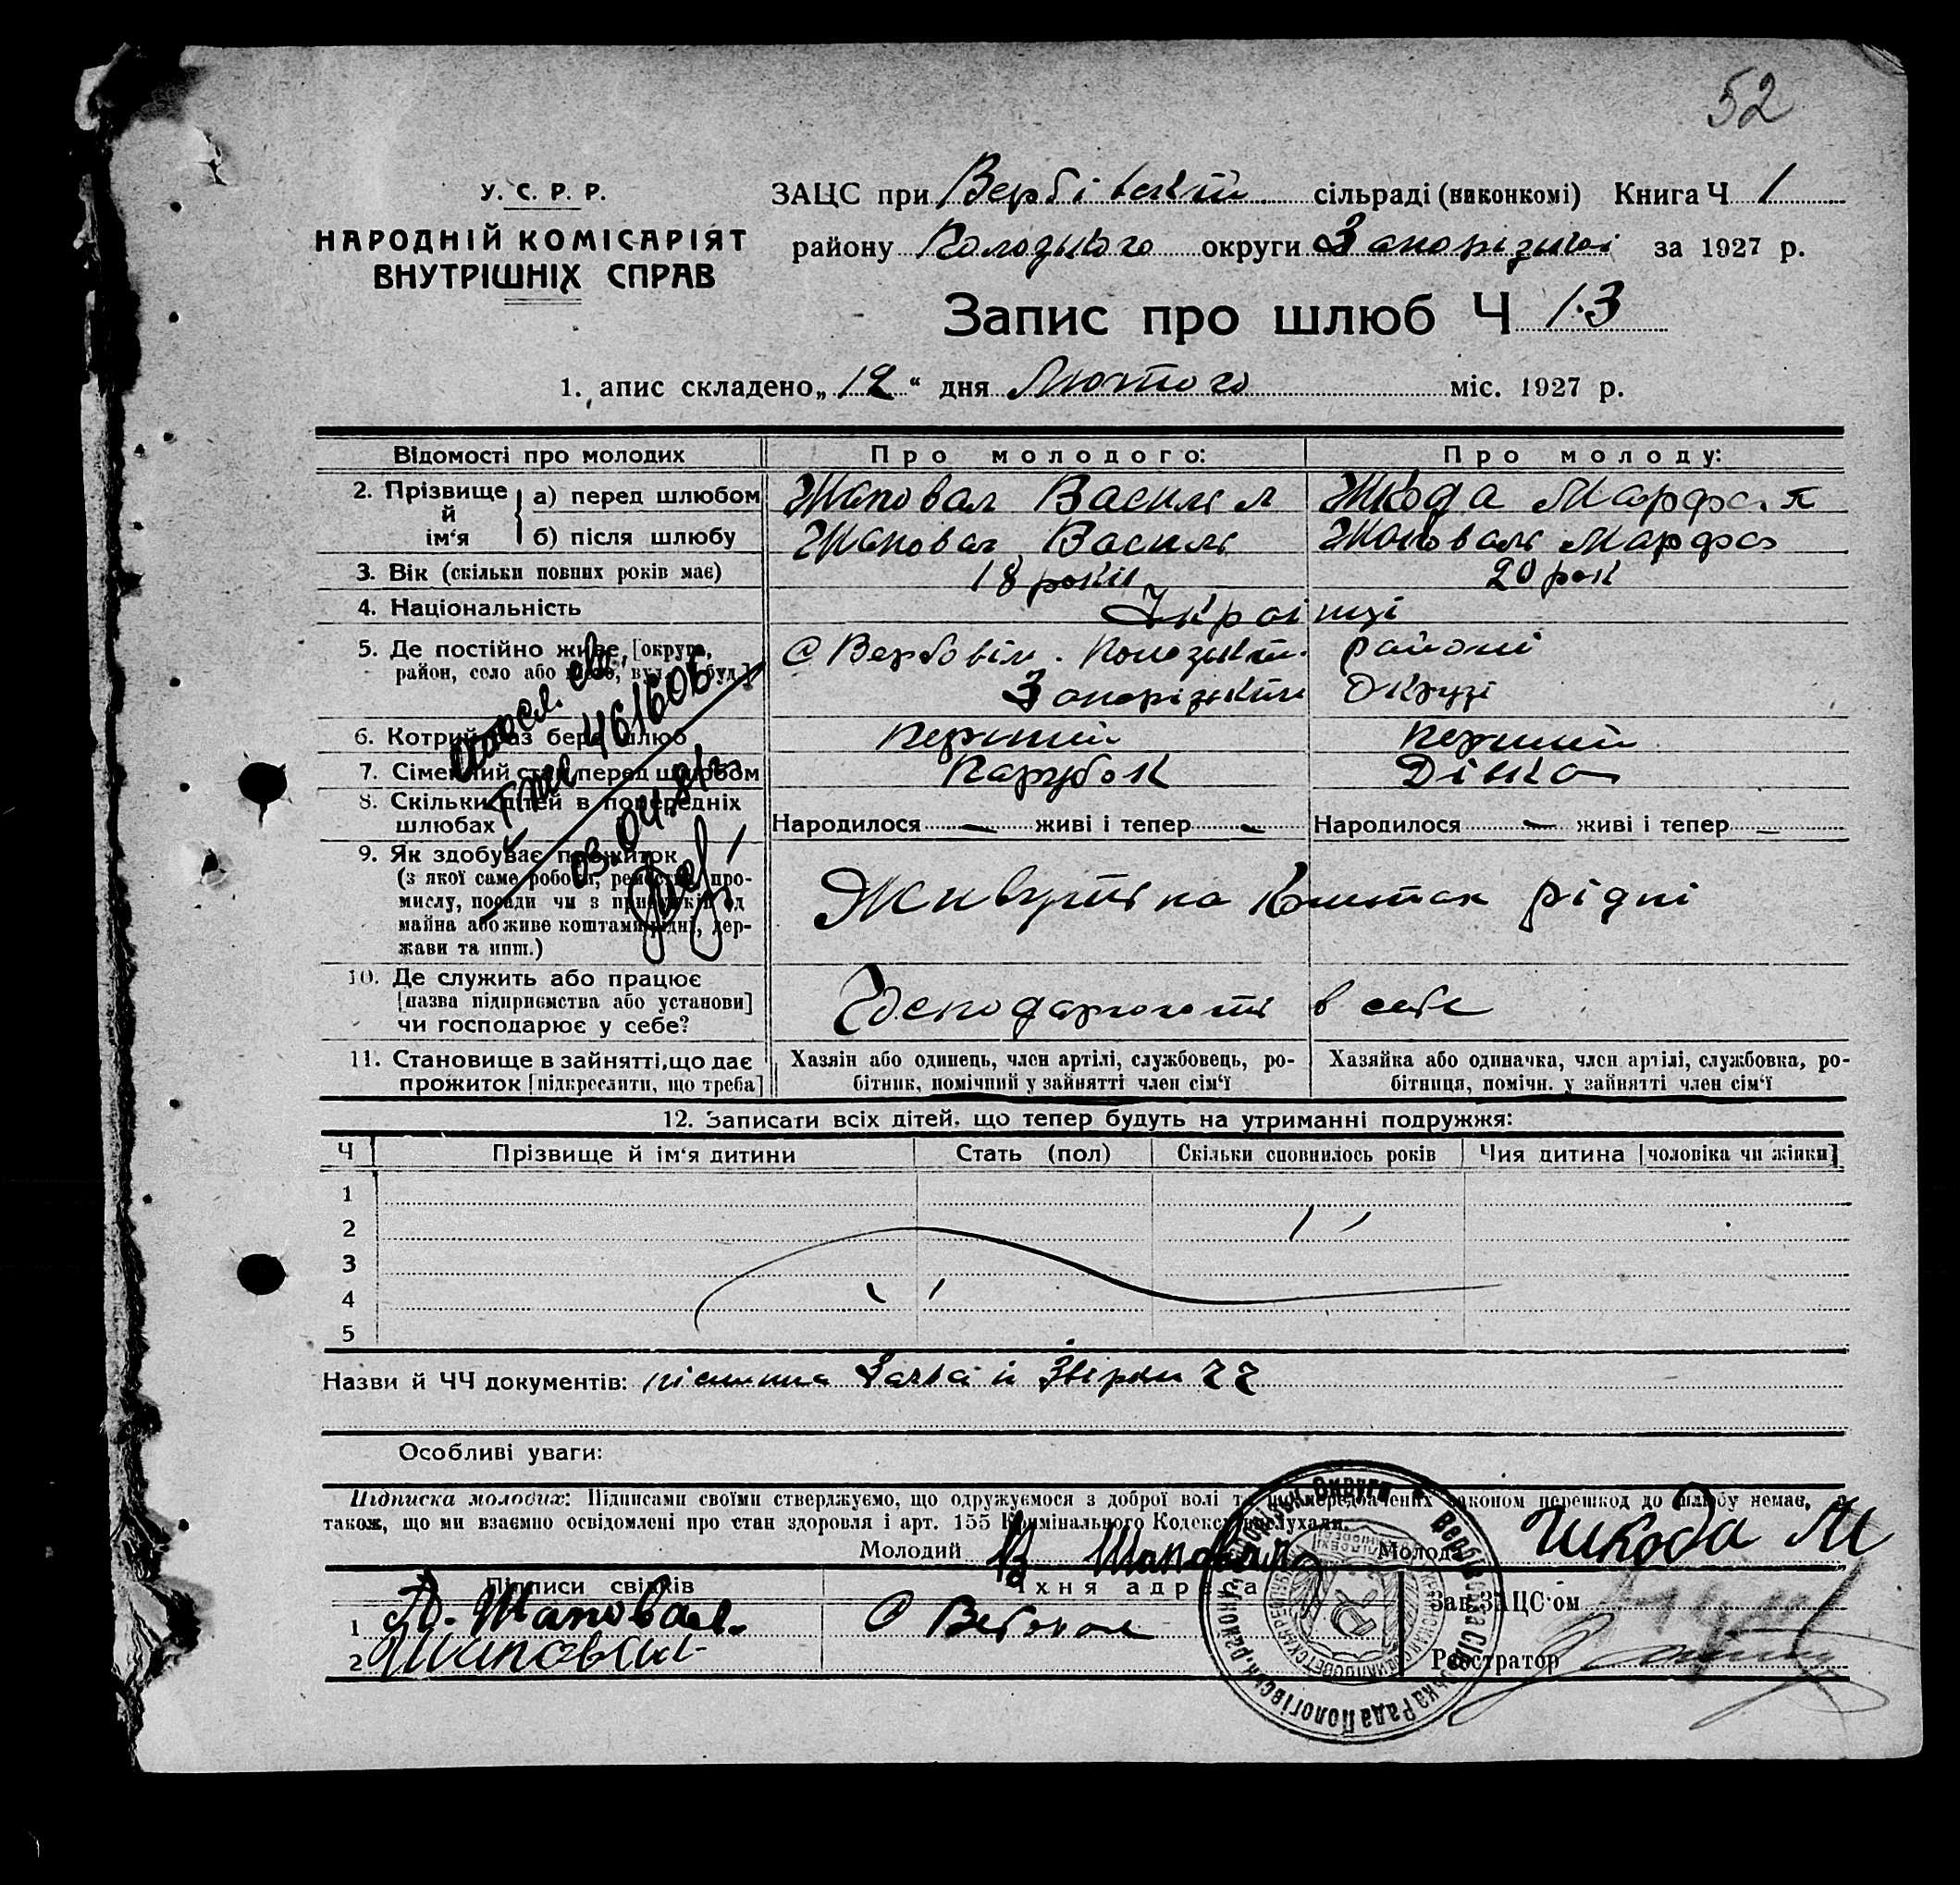 52
У. С. Р. Р.
НАРОДНІЙ КОМІСАРІЯТ
ВНУТРІШНІХ СПРАВ
ЗАЦС при Вербівській сільраді (виконкомі) Книга Ч 1
району Пологського округи Запорізької за 1927 р.
Запис про шлюб Ч 13
1. апис складено „12“ дня Лютого міс. 1927 р.
Відомості про молодих Про молодого: Про молоду:
2. Прізвище й ім‘я
а) перед шлюбом Шаповал Василь Шкода Марфа
б) після шлюбу Шаповал Василь Шаповаль Марфа
3. Вік (скільки повних років має) 18 років 20 рок
4. Національність Украінці
5. Де постійно живе, [округа, район, село або місто, вул., буд.]
с Вербовім. Пологській районі
Запорізькій Окрузі
6. Котрий раз бере шлюб Перший Перший
7. Сімейний стан перед шлюбом Парубок Дівка
8. Скільки дітей в попередніх шлюбах Народилося — живі і тепер — Народилося — живі і тепер —
9. Як здобуває прожиток
(з якої саме роботи, ремества, про-
мислу, посади чи з прибутків од
майна або живе коштами рідні, дер-
жави та инш.)
Живуть на Коштах рідні
10. Де служить або працює
[назва підприємства або установи]
чи господарює у себе?
Господарюють в себе
11. Становище в зайнятті, що дає
прожиток [підкреслити, що треба]
Хазяїн або одинець, член артілі, службовець, ро-
бітник, помічний у зайнятті член сім‘ї
Хазяйка або одиначка, член артілі, службовка, ро-
бітниця, помічн. у зайнятті член сім‘ї
461606
12. Записати всіх дітей, що тепер будуть на утриманні подружжя:
Ч Прізвище й ім‘я дитини Стать (пол) Скільки сповнилось років Чия дитина [чоловіка чи жінки]
1
2
3
4
5
Назви й ЧЧ документів:
Особливі уваги:
Підписка молодих: Підписами своїми стверджуємо, що одружуємося з доброї волі та що передбачених законом перешкод до шлюбу немає, а
також, що ми взаємно освідомлені про стан здоровля і арт. 155 Кримінального Кодексу вислухали.
Молодий В Шаповал Молода Шкода М
Підписи свідків Їхня адреса
1 Шаповал с Вербове
2 Шаповал
Зав. ЗАЦС‘ом
Реєстратор
Вербівська Сільська Рада Пологівськ. району, Запорізьк. Округи